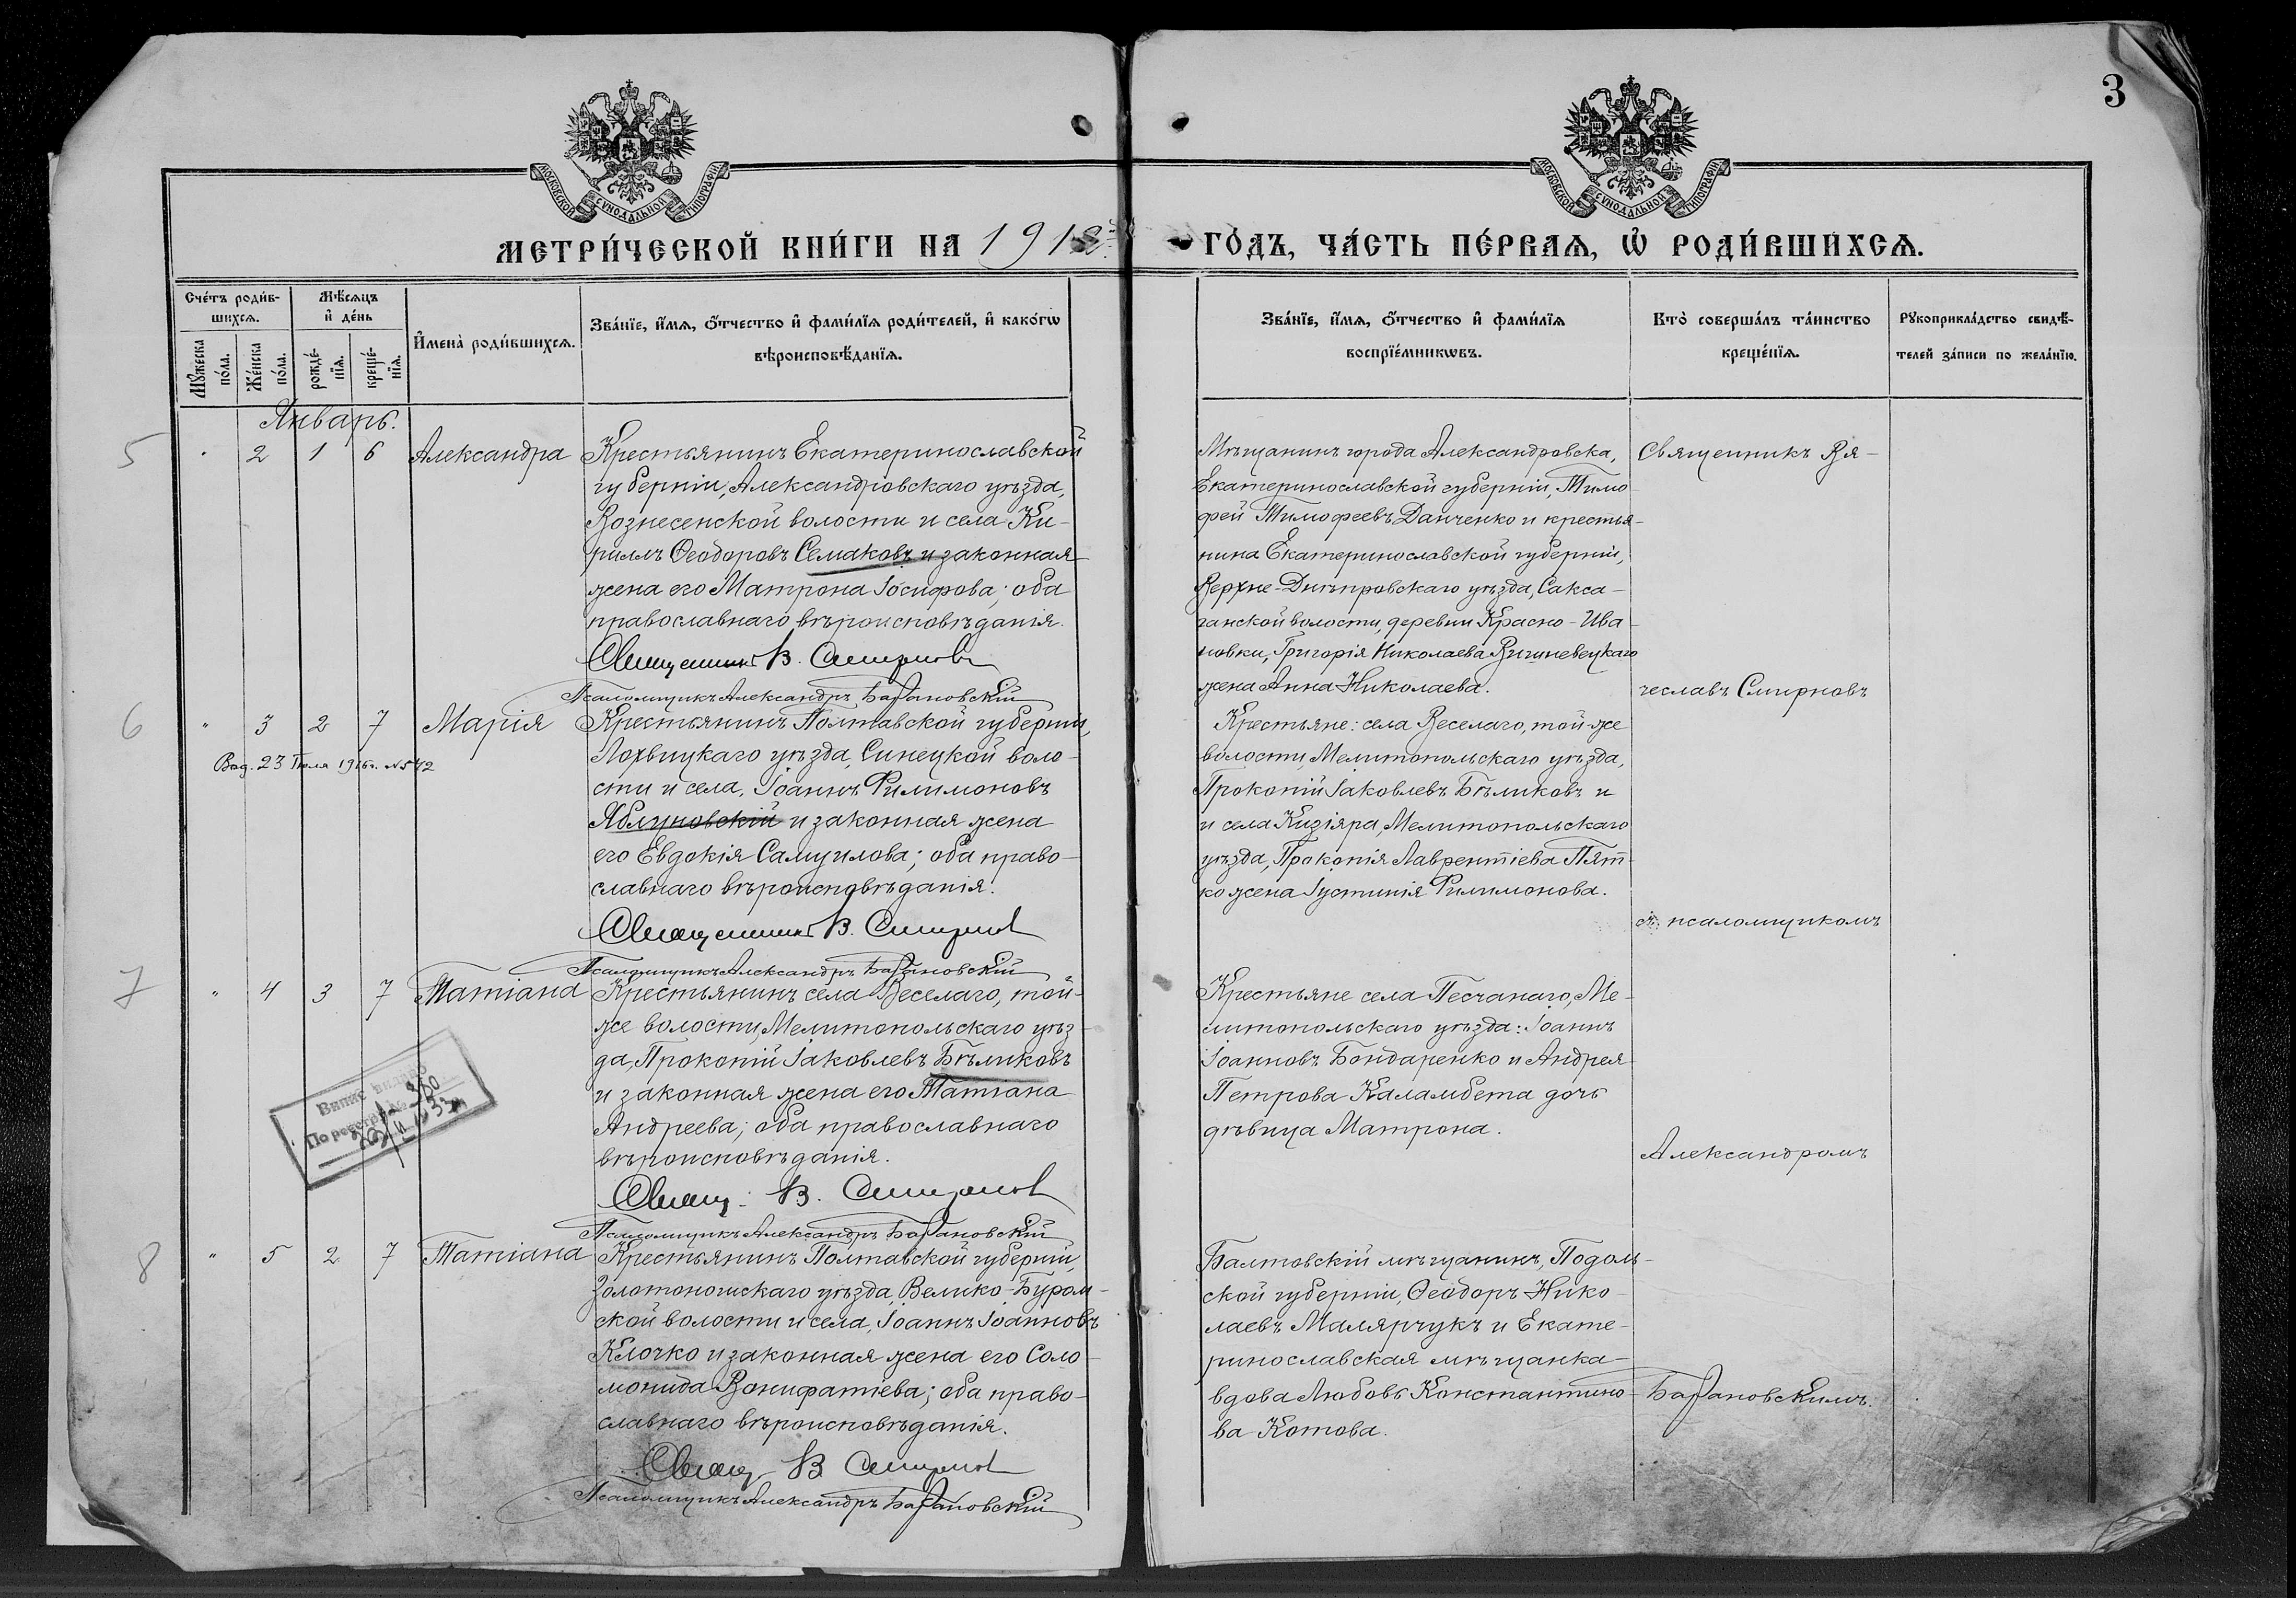 3
МОСКОВСКОЙ СѴНОДАЛЬНОЙ ТИПОГРАФІИ
МОСКОВСКОЙ СѴНОДАЛЬНОЙ ТИПОГРАФІИ
МЕТРИ́ЧЕСКОЙ КНИ́ГИ НА 191
ГО́ДЪ, ЧА́СТЬ ПЕ́РВАѦ, Ѡ҆ РОДИ́ВШИХСѦ.
Сче́тъ роди́в-
шихсѧ.
Мѣ́сѧцъ
и҆ де́нь
Мꙋ́жеска по́ла.
Же́нска по́ла.
рожде́нїѧ.
креще́нїѧ.
И҆мена̀ роди́вшихсѧ.
Зва́нїе, и҆́мѧ, ѻ҆́тчество и҆ фами́лїѧ роди́телей, и҆ како́гѡ
вѣроисповѣ́данїѧ.
Зва́нїе, и҆́мѧ, ѻ҆́тчество и҆ фами́лїѧ
воспрїе́мникѡвъ.
Кто̀ соверша́лъ та́инство
креще́нїѧ.
Рꙋкоприкла́дство свидѣ́-
телей за́писи по жела́нїю.
Январь.
5 " 2 1 6 Александра
Крестьянинъ Екатеринославской
губерніи, Александровскаго уѣзда,
Вознесенской волости и села Ки-
риллъ Ѳеодоровъ Семаковъ и законная
жена его Матрона Іосифова; оба
православнаго вѣроисповѣданія.
Священникъ В. Смирновъ
Псаломщикъ Александръ Барановскій
Мѣщанинъ города Александровска,
Екатеринославской губерніи, Тимо
фей Тимофеевъ Данченко и крестья-
нина Екатеринославской губерніи,
Верхне-Днѣпровскаго уѣзда, Сакса-
ганской волости, деревни Красно-Ива-
новки, Григорія Николаева
жена Анна Николаева.
Священникъ Вя-
чеславъ Смирновъ
6 " 3 2 7 Марія
Выд. 23 Іюля 1916г. №542
Крестьянинъ Полтавской губерніи,
Лохвицкаго уѣзда, Синецкой воло-
сти и села, Іоаннъ Филимоновъ
Яблуновскій и законная жена
его Евдокія Самуилова; оба право-
славнаго вѣроисповѣданія.
Священникъ В. Смирнов
Псаломщикъ Александръ Барановскій
Крестьяне: села Веселаго, той-же
волости, Мелитопольскаго уѣзда,
Прокопій Іаковлевъ Бѣликовъ и
и села Кизіяра, Мелитопольскаго
уѣзда, Прокопія Лаврентіева Пят-
ко жена Іустинія Филимонова.
съ псаломщикомъ
7 " 4 3 7 Татіана
Випис видано
По реєстру № 380
Крестьянинъ села Веселаго, той-
же волости, Мелитопольскаго уѣз-
да, Прокопій Іаковлевъ Бѣликовъ
и законная жена его Татіана
Андреева; оба православнаго
вѣроисповѣданія.
Свящ. В. Смирнов
Псаломщикъ Александръ Барановскій
Крестьяне села Песчанаго, Ме-
литопольскаго уѣзда: Іоаннъ
Іоанновъ Бондаренко и Андрея
Петрова Каламбета дочь
дѣвица Матрона.
Александромъ
8 " 5 2 7 Татіана
Крестьянинъ Полтавской губерніи,
Золотоношскаго уѣзда, Велико-Буром-
ской волости и села, Іоаннъ Іоанновъ
Клочко и законная жена его Соло-
монида Вонифатіева; оба право-
славнаго вѣроисповѣданія.
Свящ. В. Смирнов
Псаломщикъ Александръ Барановскій
Балтовскій мѣщанинъ, Подоль-
ской губерніи, Ѳеодоръ Нико-
лаевъ Малярчукъ и Екате-
ринославская мѣщанка-
вдова Любовь Константино-
ва Котова.
Барановскимъ.